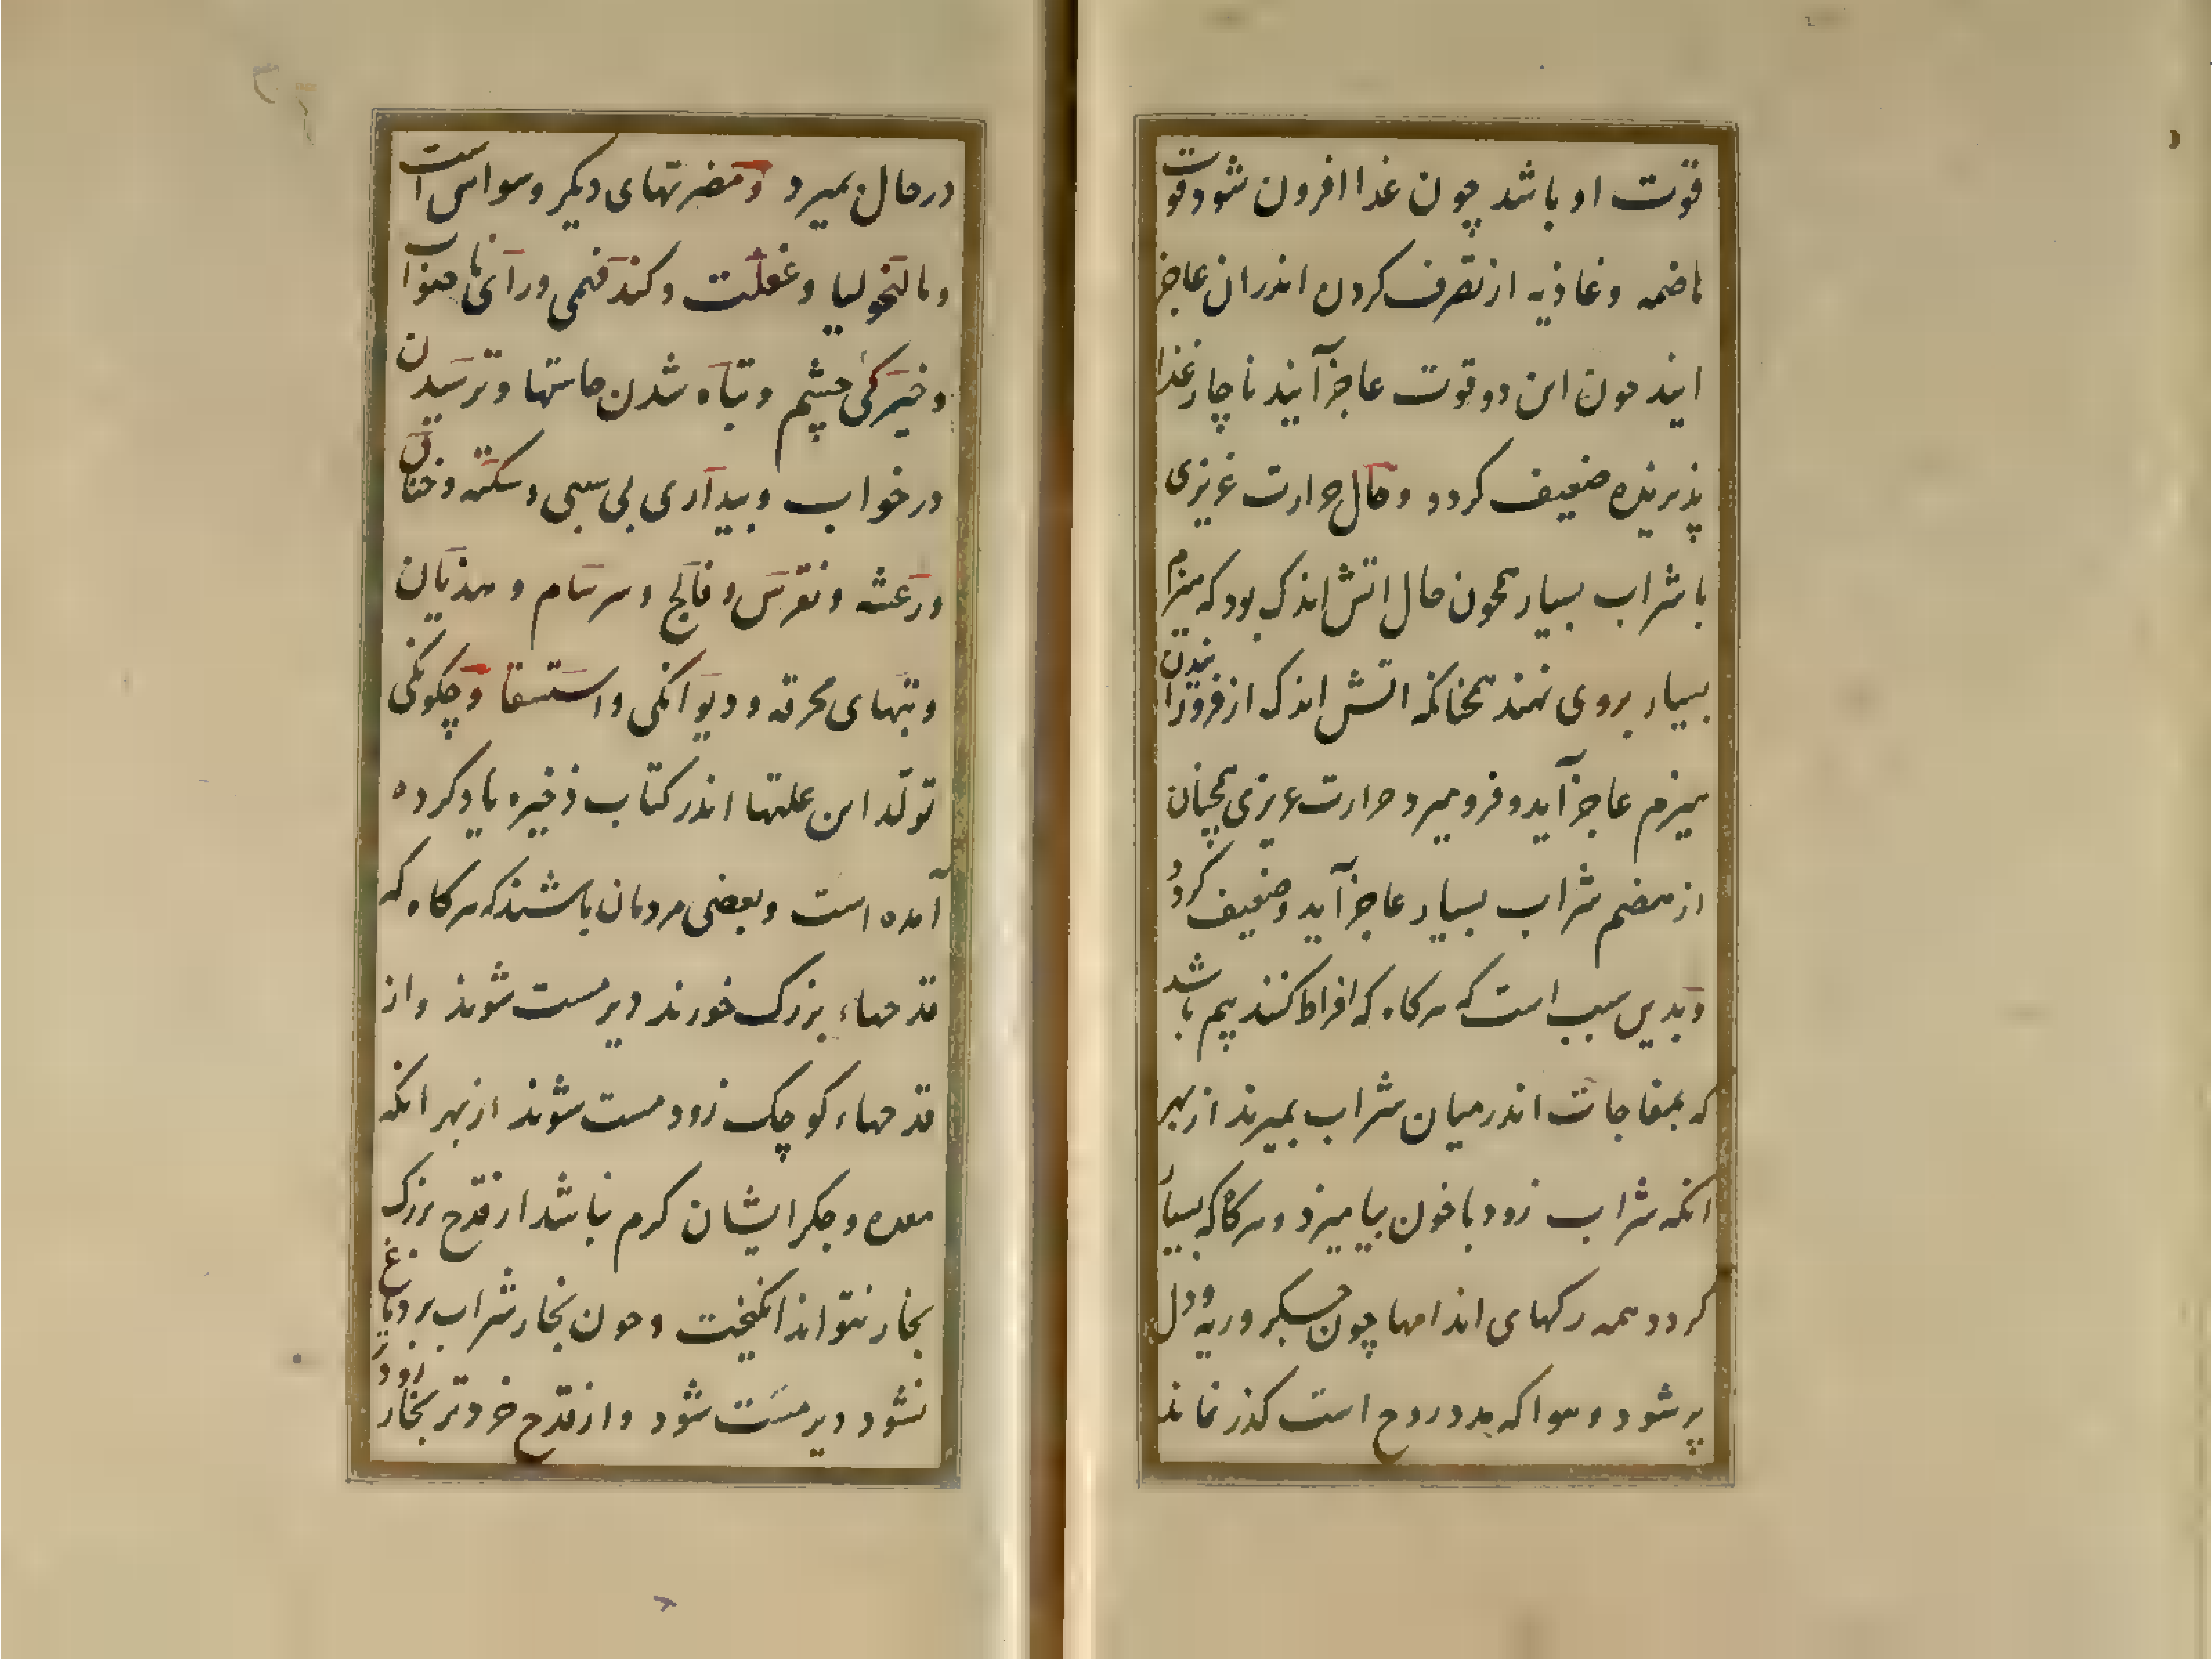 قوّت او باشد چون غذا افزون شود قوت
هاضمه و غاذیه از تصرف کردن اندران عاجز
ایند چون این دو قوت عاجز آیند ناچار غذا
پذیرنده ضعیف کردد و حال حرارت غریزی
با شراب بسیار همچون حال اتش اندک بود که هیزم
بسیار بروی نهند همچنانکه اتش اندک از فروزانیدن
هیزم عاجز آید و فرو میرد حرارت غریزی همچنان
از هضم شراب بسیار عاجز آید و ضعیف کردد
و بدین سبب است که هرکاه که افراط کنند بیم باشد
که بمفاجات اندر میان شراب بمیرند از بهر
انکه شراب زود با خون بیامیزد و هرکاه که بسیار
کردد همه رکهای اندامها چون جکر و ریه و دل
پر شود و هوا که مدد روح است کذر نماند
در حال بمیرد و مضرتهای دیکر وسواس است
و مالنخولیا و غفلت و کند فهمی و رای ناصواب
و خیرکی چشم و تباه شدن حاستها و ترسیدن
در خواب و بیداری بی سببی و سکته و خناق
و رعشه و نقرس و فالج و سرسام و هذیان
و تبهای محرقه و دیوانکی و استسقا و چکونکی
تولّد این علتها اندر کتاب ذخیره یاد کرده
آمده است و بعضی مردمان باشند که هرکاه که
قدحهاء بزرک خورند دیر مست شوند و از
قدحهاء کوچک زود مست شوند از بهر انکه
معده و جکر ایشان کرم نباشد از قدح بزرک
بخار نتواند انکیخت و چون بخار شراب بر دماغ
نشود دیر مست شود و از قدح خردتر بخار زود